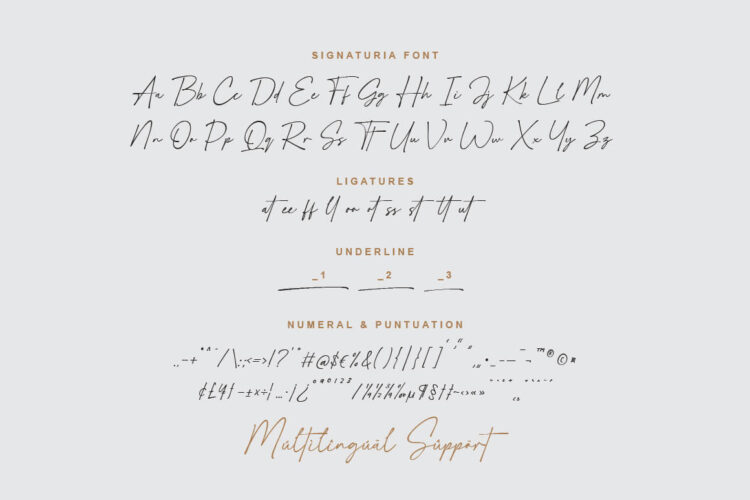 SIGNATURIA FONT
Aa Bb Cc Dd Ee Ff Gg Hh Ii Jj Kk Ll Mm
Nn Oo Pp Qq Rr Ss Tt Uu Vv Ww Xx Yy Zz
LIGATURES
at ee ff ll on ot ss st tt ut
UNDERLINE
_1 _2 _3
NUMERAL & PUNTUATION
#@$€%&(){|/{[]
Múltilingúäl Süppört